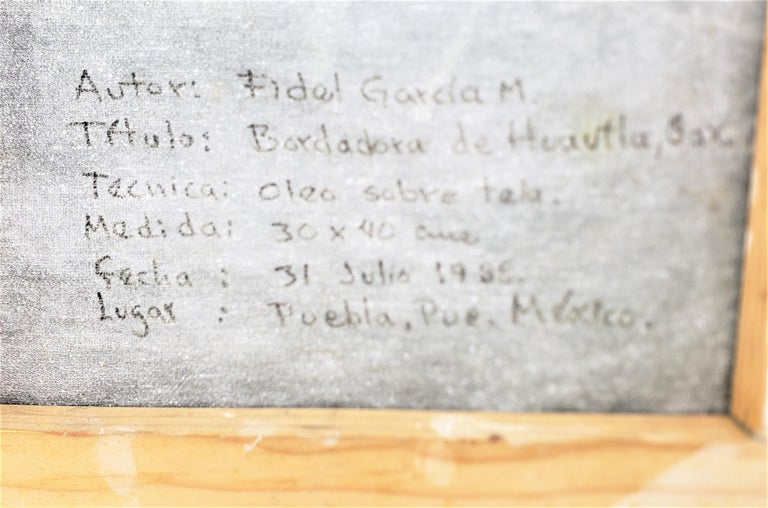 Autor: Fidel García M.
Título: Bordadora de Huautla, Oax.
Tecnica: oleo sobre tela.
Medida: 30 x 40 cms
Fecha : 31 Julio
Lugar : Puebla, Pue. México.